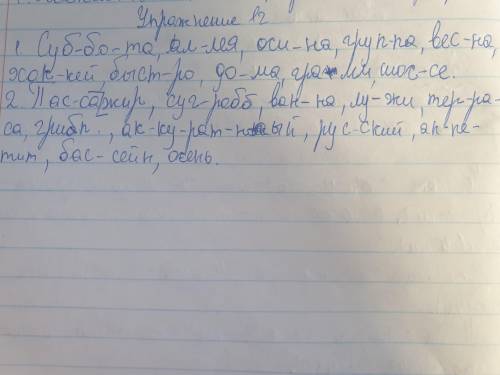 Упражнение 12
1 Суб-бо-та, ал-лея, оси-на, груп-па, вес-на,
хок-кей, быст-ро, до-ма, грамм, шос-се.
2. Пас-сажир, суг-роб, ван-на, лу-жи, тер-ра-
са, грибы, ак-ку-рат-ный, рус-ский, ап-пе-
тит, бас-сейн, осень.